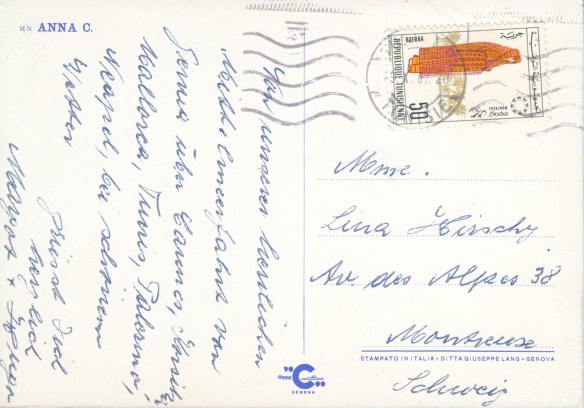 M/N ANNA C.
Von unserer herrlichen
Mittelmeerfahrt von
Genua über Cannes,
Mallorca, Tunis, Palermo,
Neapel, bei schönem
Wetter
grüsst Dich
herzlich
Margot +
RÉPUBLIQUE TUNISIENNE
50
MONTREAL
Mme.
Lina Hirschy
Av. des Alpes 38
Montreux
STAMPATO IN ITALIA - DITTA GIUSEPPE LANG - GENOVA
Schweiz
C
GENOVA